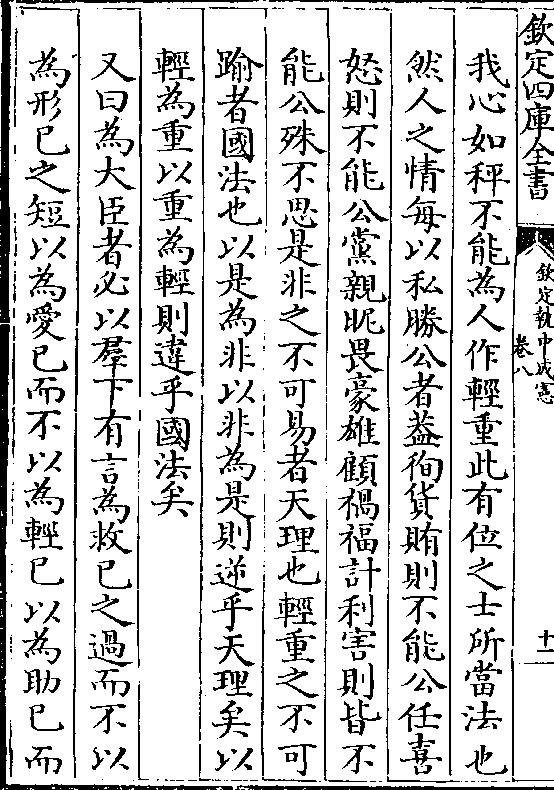 欽定四庫全書
欽定執中成憲
卷八
十一
我心如秤不能為人作輕重此有位之士所當法也
然人之情每以私勝公者葢徇貨賄則不能公任喜
怒則不能公黨親昵畏豪雄顧禍福計利害則皆不
能公殊不思是非之不可易者天理也輕重之不可
踰者國法也以是為非以非為是則逆乎天理矣以
輕為重以重為輕則違乎國法矣
又曰為大臣者必以羣下有言為救已之過而不以
為形已之短以為愛已而不以為輕已以為助已而